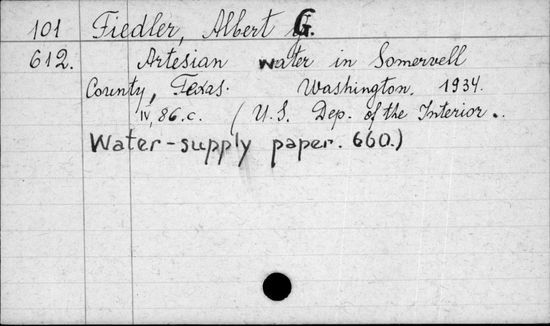 101 Fiedler, Albert G.
612. Artesian water in Somervell
County, Texas. Washington, 1934.
IV, 86.c. (U.S. Dep. of the Interior..
Water-supply paper. 660.)